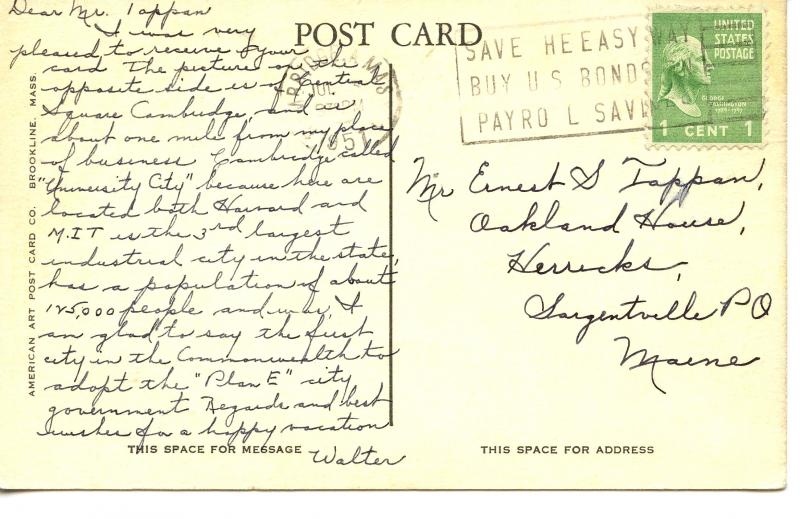 POST CARD
Dear Mr. Tappan
I was very
pleased to receive your
card The picture on the
opposite side is of Central
Square Cambridge, and
about one mile from my place
of business Cambridge called
"University City" because here are
located both Harvard and
M.I.T is the 3rd largest
industrial city in the state,
has a population of about
125,000 people and was, I
am glad to say the first
city in the Commonwealth to
adopt the "Plan E" city
government Regards and best
wishes for a happy vacation
Walter
THIS SPACE FOR MESSAGE
AMERICAN ART POST CARD CO. BROOKLINE, MASS.
SAVE HEEASY WAY
BUY U S BONDS
PAYRO L SAVIN
UNITED
STATES
POSTAGE
GEORGE
WASHINGTON
1789-1797
1 CENT 1
Mr Ernest S Tappan,
Oakland House,
Herricks,
Sargentville P O
Maine
THIS SPACE FOR ADDRESS